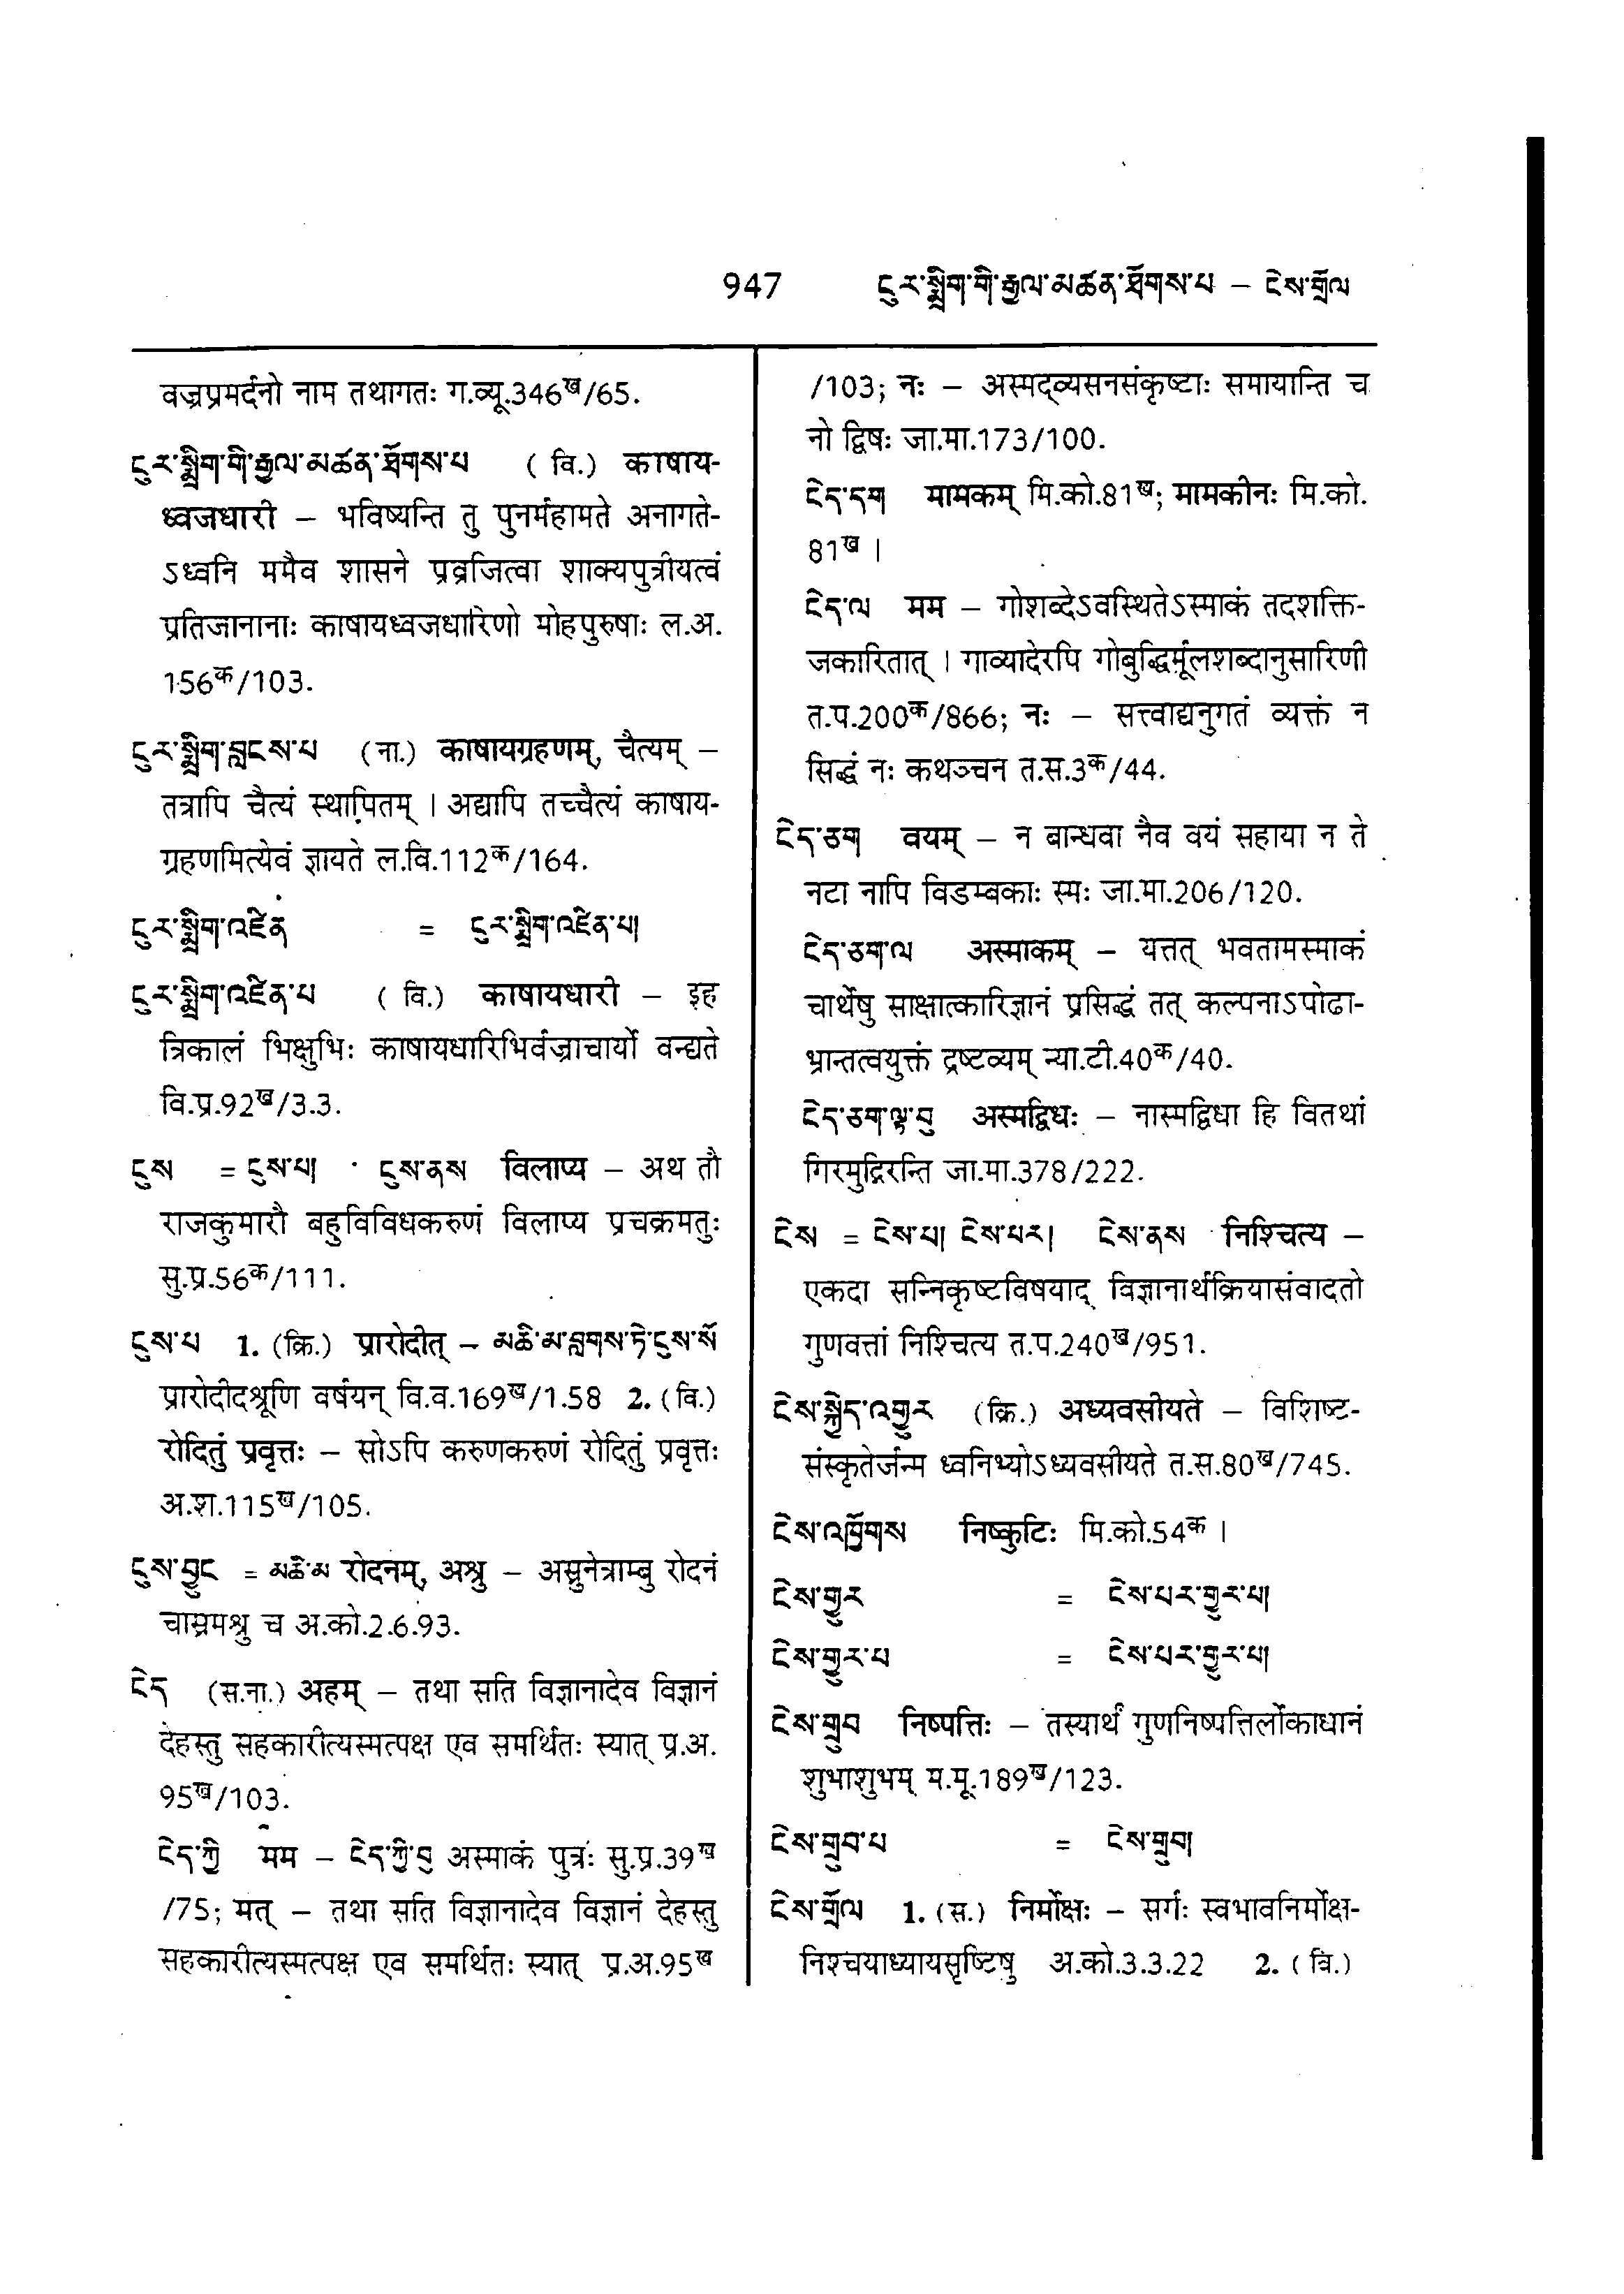 947 ངུར་སྨྲིག་གི་རྒྱལ་མཚན་ཐོགས་པ – ངེས་གྲོལ
वज्रप्रमर्दनो नाम तथागतः ग.व्यू.346ख/65.
ངུར་སྨྲིག་གི་རྒྱལ་མཚན་ཐོགས་པ (वि.) काषाय-
ध्वजधारी – भविष्यन्ति तु पुनर्महामते अनागते-
ऽध्वनि ममैव शासने प्रव्रजित्वा शाक्यपुत्रीयत्वं
प्रतिजानानाः काषायध्वजधारिणो मोहपुरुषाः ल.अ.
156क/103.
ངུར་སྨྲིག་བླངས་པ (ना.) काषायग्रहणम्, चैत्यम् –
तत्रापि चैत्यं स्थापितम् । अद्यापि तच्चैत्यं काषाय-
ग्रहणमित्येवं ज्ञायते ल.वि.112क/164.
ངུར་སྨྲིག་འཛིན = ངུར་སྨྲིག་འཛིན་པ།
ངུར་སྨྲིག་འཛིན་པ (वि.) काषायधारी – इह
त्रिकालं भिक्षुभिः काषायधारिभिर्वज्राचार्यो वन्द्यते
वि.प्र.92ख/3.3.
ངུས = ངུས་པ། ངུས་ནས विलाप्य – अथ तौ
राजकुमारौ बहुविविधकरुणं विलाप्य प्रचक्रमतुः
सु.प्र.56क/111.
ངུས་པ 1. (क्रि.) प्रारोदीत् – མཆི་མ་བླགས་ཏེ་ངུས་སོ
प्रारोदीदश्रूणि वर्षयन् वि.व.169ख/1.58 2. (वि.)
रोदितुं प्रवृत्तः – सोऽपि करुणकरुणं रोदितुं प्रवृत्तः
अ.श.115ख/105.
ངུས་བྱུང = མཆི་མ रोदनम्, अश्रु – अस्रुनेत्राम्बु रोदनं
चास्रमश्रु च अ.को.2.6.93.
ངེད (स.ना.) अहम् – तथा सति विज्ञानादेव विज्ञानं
देहस्तु सहकारीत्यस्मत्पक्ष एव समर्थितः स्यात् प्र.अ.
95ख/103.
ངེད་ཀྱི मम – ངེད་ཀྱི་བུ अस्माकं पुत्रः सु.प्र.39ख
/75; मत् – तथा सति विज्ञानादेव विज्ञानं देहस्तु
सहकारीत्यस्मत्पक्ष एव समर्थितः स्यात् प्र.अ.95ख
/103; नः – अस्मद्व्यसनसंकृष्टाः समायान्ति च
नो द्विषः जा.मा.173/100.
ངེད་དག मामकम् मि.को.81ख; मामकीनः मि.को.
81ख ।
ངེད་ལ मम – गोशब्देऽवस्थितेऽस्माकं तदशक्ति-
जकारितात् । गाव्यादेरपि गोबुद्धिर्मूलशब्दानुसारिणी
त.प.200क/866; नः – सत्त्वाद्यनुगतं व्यक्तं न
सिद्धं नः कथञ्चन त.स.3क/44.
ངེད་ཅག वयम् – न बान्धवा नैव वयं सहाया न ते
नटा नापि विडम्बकाः स्मः जा.मा.206/120.
ངེད་ཅག་ལ अस्माकम् – यत्तत् भवतामस्माकं
चार्थेषु साक्षात्कारिज्ञानं प्रसिद्धं तत् कल्पनाऽपोढा-
भ्रान्तत्वयुक्तं द्रष्टव्यम् न्या.टी.40क/40.
ངེད་ཅག་ལྟ་བུ अस्मद्विधः – नास्मद्विधा हि वितथां
गिरमुद्गिरन्ति जा.मा.378/222.
ངེས = ངེས་པ། ངེས་པར། ངེས་ནས निश्चित्य –
एकदा सन्निकृष्टविषयाद् विज्ञानार्थक्रियासंवादतो
गुणवत्तां निश्चित्य त.प.240ख/951.
ངེས་སྐྱེད་འགྱུར (क्रि.) अध्यवसीयते – विशिष्ट-
संस्कृतेर्जन्म ध्वनिभ्योऽध्यवसीयते त.स.80ख/745.
ངེས་འཁྲོགས निष्कुटिः मि.को.54क ।
ངེས་གྱུར = ངེས་པར་གྱུར་པ།
ངེས་གྱུར་པ = ངེས་པར་གྱུར་པ།
ངེས་གྲུབ निष्पत्तिः – तस्यार्थं गुणनिष्पत्तिर्लोकाधानं
शुभाशुभम् म.मू.189ख/123.
ངེས་གྲུབ་པ = ངེས་གྲུབ།
ངེས་གྲོལ 1. (स.) निर्मोक्षः – सर्गः स्वभावनिर्मोक्ष-
निश्चयाध्यायसृष्टिषु अ.को.3.3.22 2. (वि.)